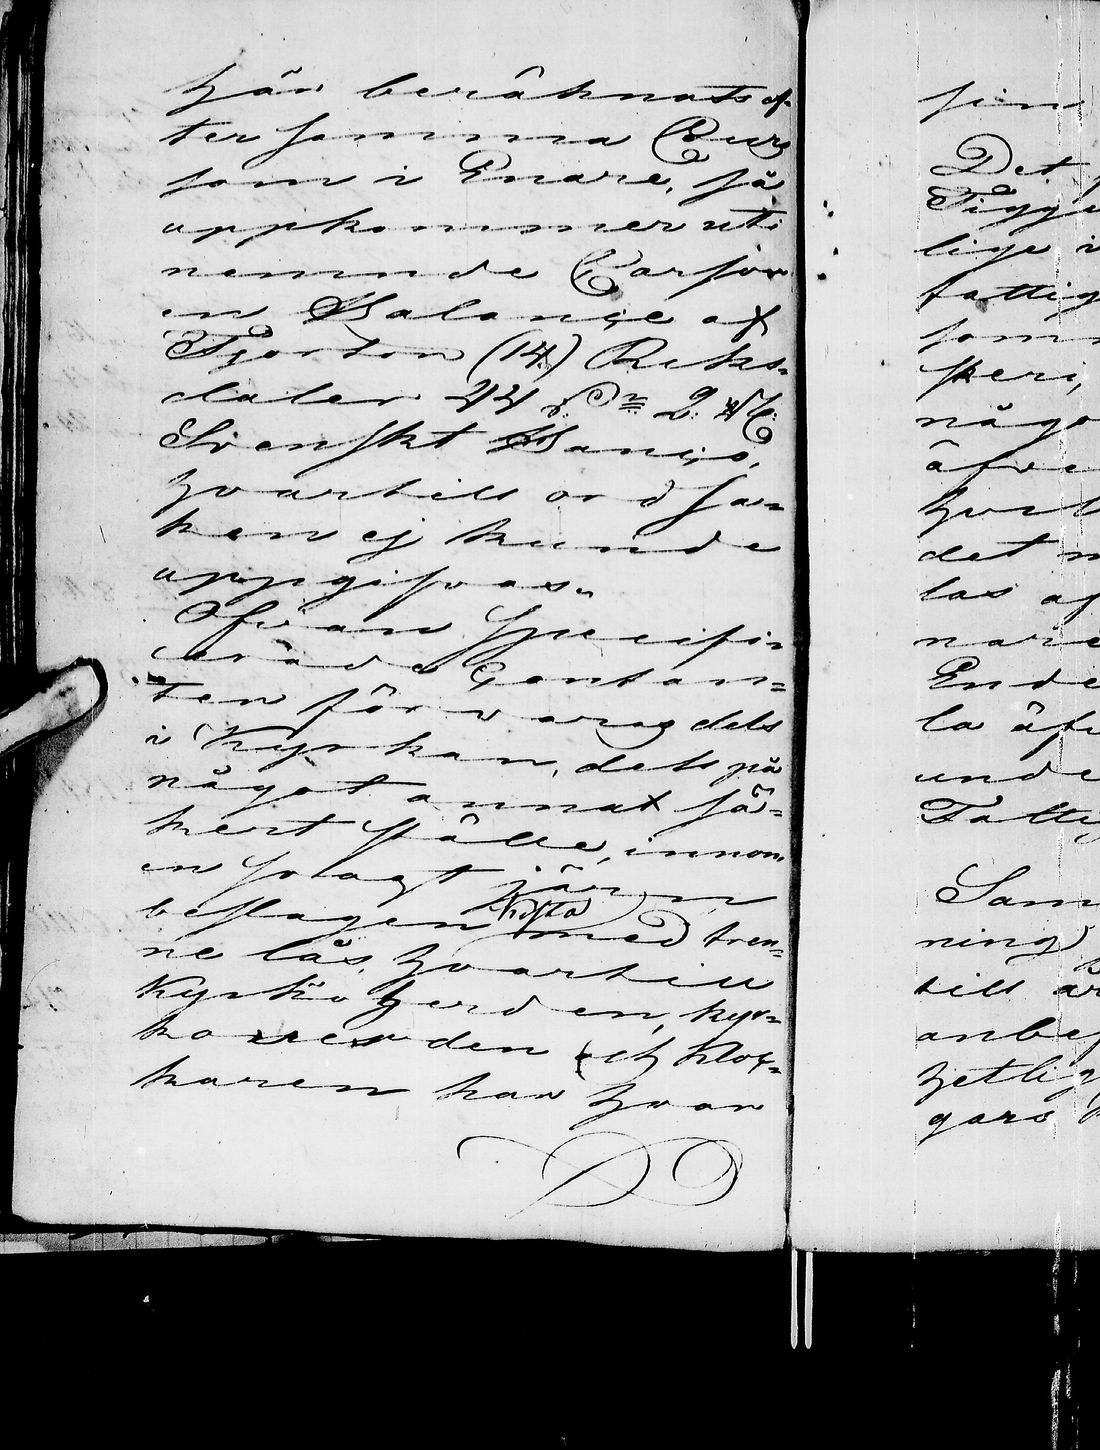 här beräknats ef-
ter samma Curs
som i Enare, så
uppkommer uti
nemnde Cassor
en Balance af
Fjorton (14) Riks-
daler 44 s. 2
Svenskt Banco,
hvartill ordsa-
ken ej kunde
uppgifvas.
Ofvan Specifi-
cerade Contan-
ter förvaras dels
i Kyrkan, dels på
något annat sä-
kert ställe, innom
en svagt järn
beslagen Kista med tren-
ne lås, hvartill
Kyrkoherden, kyr-
kovärden och Kloc-
karen har hvar
sin
Det
Tigge
lige i
fattig
som
skeri,
någo
äfve
hvil
det
las af
nare
Ende
la äfv
unde
Fatti
Sam
ning
till är
anbef
hetlig
gars